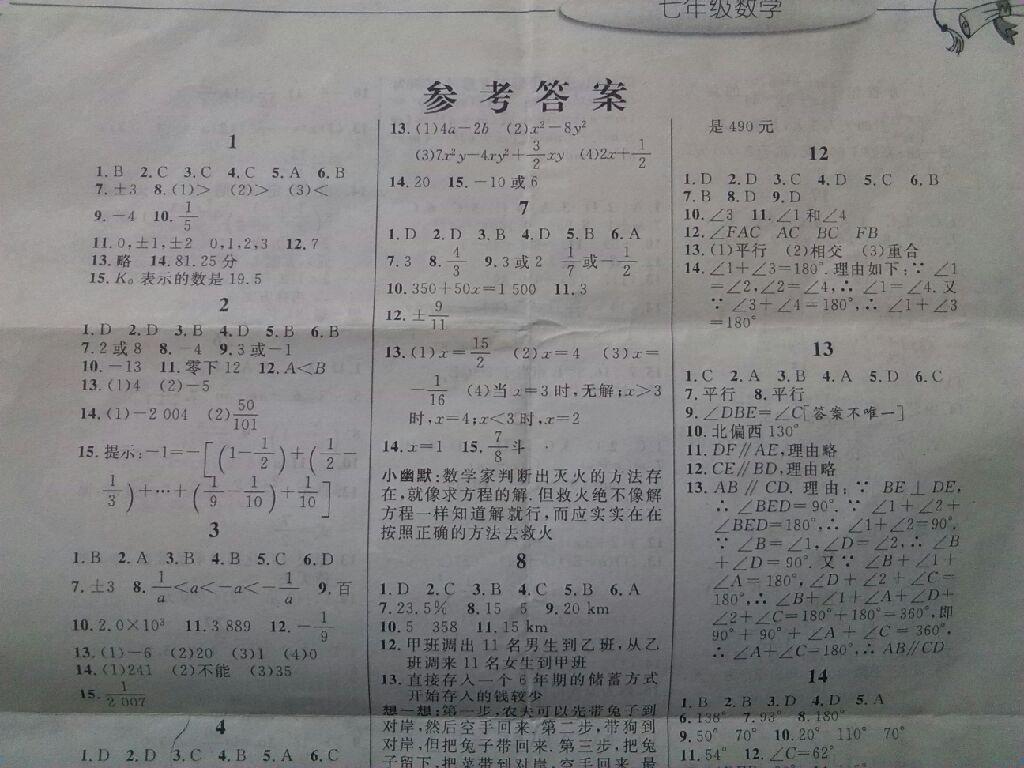 七年级数学
参考答案
1
1.B 2.C 3.C 4.C 5.A 6.B
7.±3 8.(1)> (2)> (3)<
9.-4 10.1/5
11.0,±1,±2 0,1,2,3 12.7
13.略 14.81.25分
15.K₀表示的数是19.5
2
1.D 2.D 3.B 4.D 5.B 6.B
7.2或8 8.-4 9.3或-1
10.-13 11.零下12 12.A<B
13.(1)4 (2)-5
14.(1)-2 004 (2)50/101
15.提示:-1=-[(1-1/2)+(1/2-
1/3)+…+(1/9-1/10)+1/10]
3
1.B 2.A 3.B 4.B 5.C 6.D
7.±3 8.1/a<a<-a<-1/a 9.百
10.2.0×10³ 11.3 889 12.-1/9
13.(1)-6 (2)20 (3)1 (4)0
14.(1)241 (2)不能 (3)35
15.1/2 007
4
1.D 2.D 3.C 4.C 5.B 6.B
13.(1)4a-2b (2)x²-8y²
(3)7x²y-4xy²+3/2xy (4)2x+1/2
14.20 15.-10或6
7
1.D 2.D 3.B 4.D 5.B 6.A
7.3 8.4/3 9.3或2 1/7或-1/2
10.350+50x=1 500 11.3
12.±9/11
13.(1)x=15/2 (2)x=4 (3)x=
-1/16 (4)当x=3时,无解;x>3
时,x=4;x<3时,x=2
14.x=1 15.7/8斗
小幽默:数学家判断出灭火的方法存
在,就像求方程的解.但救火绝不像解
方程一样知道解就行,而应实实在在
按照正确的方法去救火
8
1.D 2.C 3.B 4.C 5.B 6.A
7.23.5% 8.15 5 9.20 km
10.5 358 11.15 km
12.甲班调出11名男生到乙班,从乙
班调来11名女生到甲班
13.直接存入一个6年期的储蓄方式
开始存入的钱较少
想一想:第一步,农夫可以先带兔子到
对岸,然后空手回来.第二步,带狗到
对岸,但把兔子带回来.第三步,把兔
子留下,把菜带到对岸,空手回来.最
是490元
12
1.D 2.D 3.C 4.D 5.C 6.B
7.B 8.D 9.D
10.∠3 11.∠1和∠4
12.∠FAC AC BC FB
13.(1)平行 (2)相交 (3)重合
14.∠1+∠3=180°.理由如下:∵ ∠1
=∠2,∠2=∠4,∴ ∠1=∠4.又
∵ ∠3+∠4=180°,∴ ∠1+∠3
=180°
13
1.C 2.A 3.B 4.A 5.D 6.C
7.平行 8.平行
9.∠DBE=∠C[答案不唯一]
10.北偏西130°
11.DF∥AE,理由略
12.CE∥BD,理由略
13.AB∥CD.理由:∵ BE⊥DE,
∴ ∠BED=90°.∵ ∠1+∠2+
∠BED=180°,∴ ∠1+∠2=90°.
∵ ∠B=∠1,∠D=∠2,∴ ∠B
+∠D=90°.又∵ ∠B+∠1+
∠A=180°,∠D+∠2+∠C=
180°,∴ ∠B+∠1+∠A+∠D+
∠2+∠C=180°+180°=360°,即
90°+90°+∠A+∠C=360°,
∴ ∠A+∠C=180°,∴ AB∥CD
14
1.B 2.B 3.D 4.D 5.A
6.138° 7.98° 8.180°
9.50° 70° 10.20° 110° 70°
11.54° 12.∠C=62°